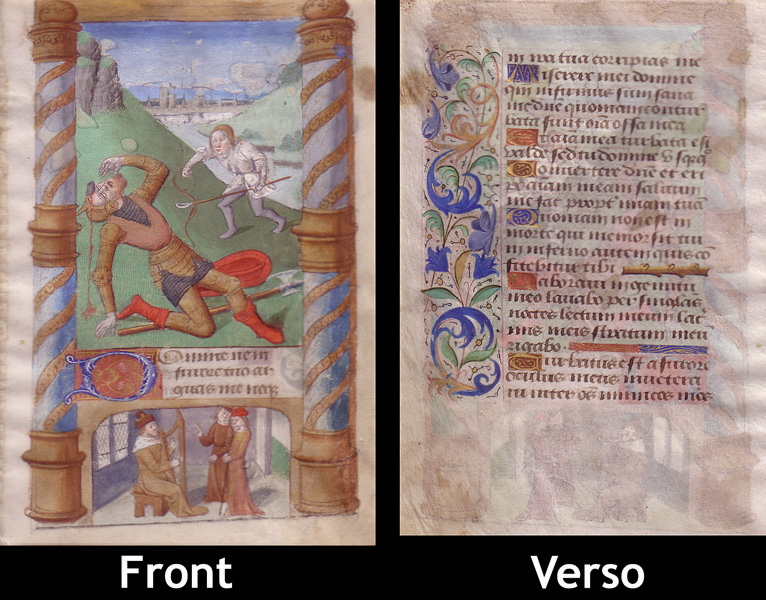 Domine ne in
furore tuo ar
guas me neqz
in ira tua corripias me
Miserere mei domine
qm infirmus sum sana
me dñe quoniam contur
bata sunt oĩa ossa mea
Et aĩa mea turbata est
valde sed tu domine
Convertere dñe et eri
meam salvum
me fac propt mĩam tuã
Quoniam non est in
morte qui memor sit tui
in inferno autem quis cõ
fitebitur tibi
Laboravi in gemitu
meo lavabo per singlas
noctes lectum meum lac
mis meis stratum meũ
rigabo
Turbatus est a furore
oculus meus invetera
vi inter os inimicos meos
Front
Verso